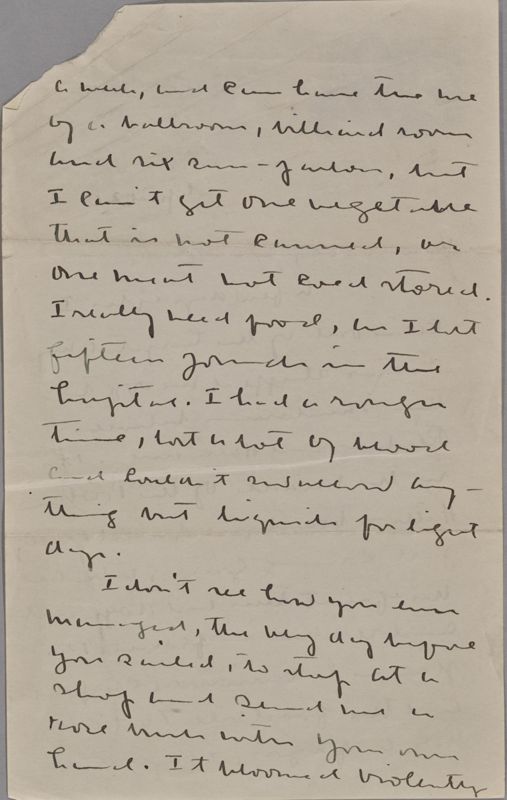 a week, and can have the use
of a ballroom, billiard room
and six sun-parlors, but
I can't get one vegetable
that is not canned, or
one meat not cold stored.
I really need food, as I lost
fifteen pounds in the
hospital. I had a rough
time, lost a lot of blood
and couldn't swallow any-
thing but liquids for eight
days.
I don't see how you ever
managed, the very day before
you sailed, to stop at a
shop and send me a
rose bush with your own
hand. It bloomed violently